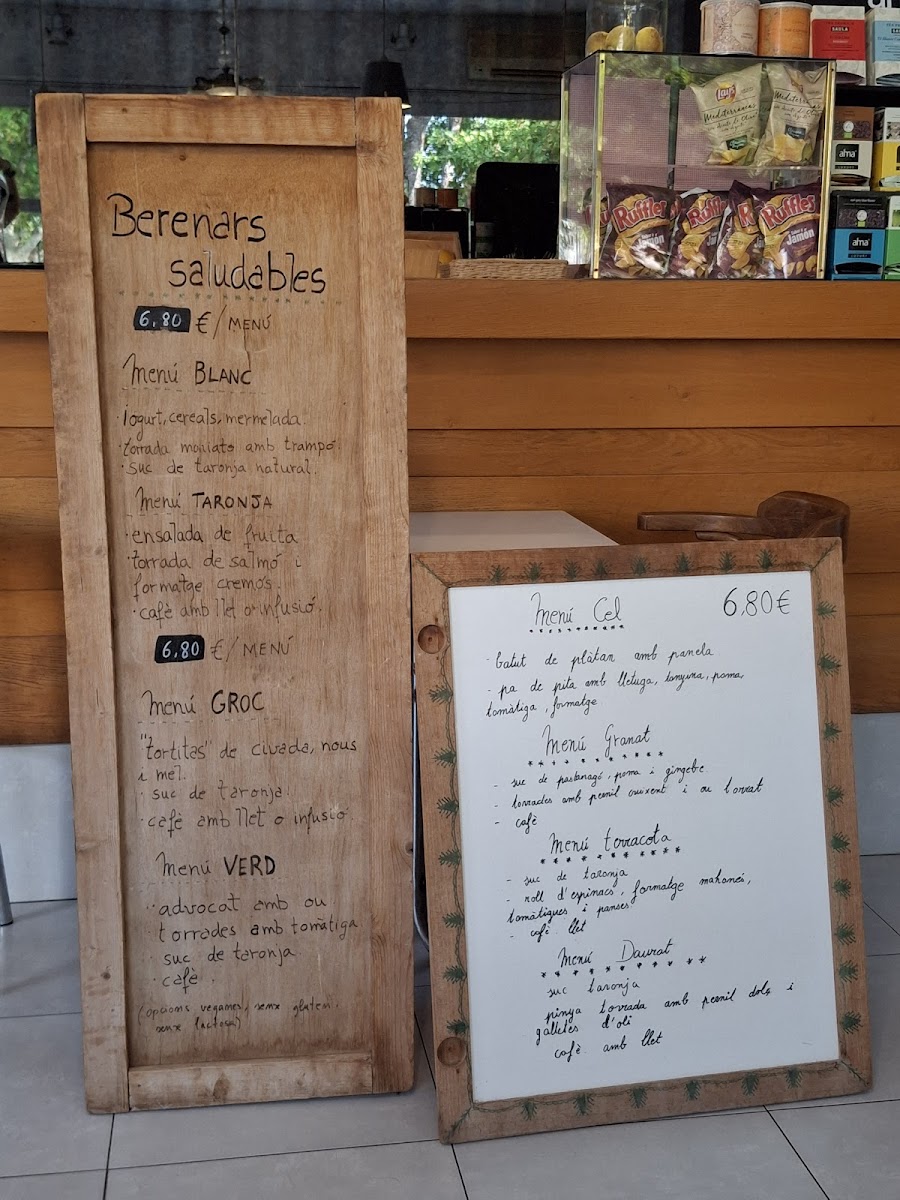 Berenars
saludables
6,80 €/MENÚ
Menú BLANC
· Iogurt, cereals, mermelada.
· torrada moniato amb trampó.
· Suc de taronja natural.
Menú TARONJA
· ensalada de fruita
· torrada de salmó i
formatge cremós.
· cafè amb llet o infusió.
6,80 €/MENÚ
Menú GROC
· "tortitas" de civada, nous
i mel.
· suc de taronja.
· cafè amb llet o infusió.
Menú VERD
· advocat amb ou
torrades amb tomàtiga
· suc de taronja
· cafè.
(opcions veganes, senx gluten.
senx lactosa)
Menú Cel 6,80€
- batut de plàtan amb panela.
- pa de pita amb lletuga, tonyina, poma,
tomàtiga, formatge
Menú Granat
- suc de pastanagó, poma i gingebre.
- torrades amb pernil cruixent i ou torrat
- cafè
Menú terracota
- suc de taronja
- roll d'espinacs, formatge mahonès,
tomàtigues i panses.
- cafè llet
Menú Daurat
suc taronja
pinya torrada amb pernil dolç i
galletes d'oli
cafè amb llet
Lay's
Mediterráneas
con Aceite de Oliva
Mediterráneas
Ruffles
Jamón
Ruffles
Jamón
Ruffles
Jamón
SAULA
SAULA
alma
alma
alma